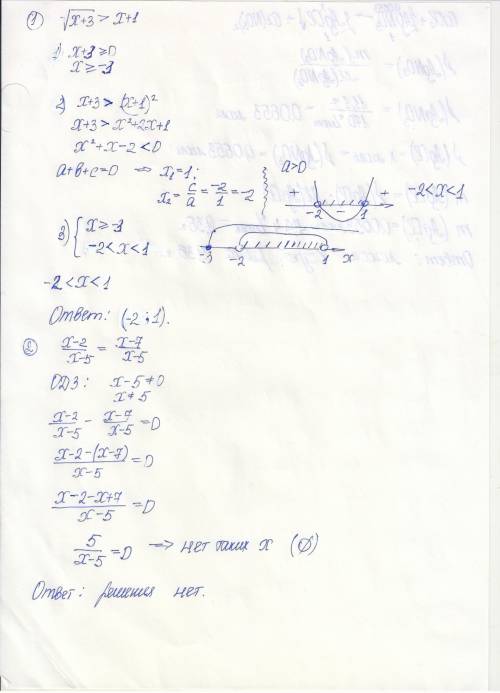 ① √x+3 > x+1
1) x+3 ≥ 0
x ≥ -3
2) x+3 > (x+1)²
x+3 > x²+2x+1
x²+x-2 < 0
a+b+c=0 ⇒ x₁=1;
x₂ = c/a = -2/1 = -2
a>0
+ - +
-2 1
-2<x<1
3) { x ≥ -3
-2<x<1
-3 -2 1 x
-2<x<1
Ответ: (-2;1).
② x-2/x-5 = x-7/x-5
ОДЗ: x-5≠0
x≠5
x-2/x-5 - x-7/x-5 = 0
x-2-(x-7)/x-5 = 0
x-2-x+7/x-5 = 0
5/x-5 = 0 ⇒ нет таких x (∅)
Ответ: решения нет.